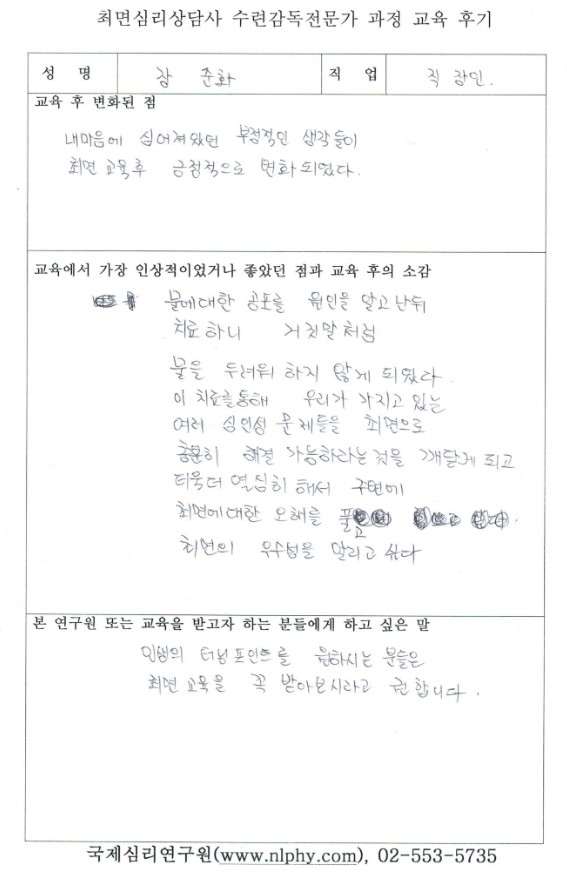 최면심리상담사 수련감독전문가 과정 교육 후기
성 명 장 준화 직 업 직장인.
교육 후 변화된 점
내마음에 심어져왔던 부정적인 생각들이
최면 교육후 긍정적으로 변화 되었다.
교육에서 가장 인상적이었거나 좋았던 점과 교육 후의 소감
물에대한 공포를 원인을 알고난뒤
치료하니 거짓말처럼
물을 두려워 하지 않게 되었다.
이 치료를통해 우리가 가지고 있는
여러 심인성 문제들을 최면으로
충분히 해결 가능하라는것을 깨닫게 되고
더욱더 열심히 해서 주변에
최면에대한 오해를 풀고
최면의 우수성을 알리고 싶다
본 연구원 또는 교육을 받고자 하는 분들에게 하고 싶은 말
인생의 터닝포인트를 원하시는 분들은
최면 교육을 꼭 받아보시라고 권합니다.
국제심리연구원(www.nlphy.com), 02-553-5735